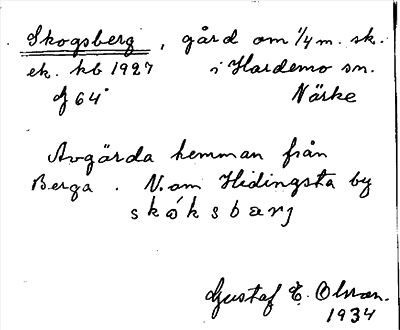 Skogsberg, gård om 1/4 m. sk.
ek. kb 1927 i Hardemo sn.
J 64 Närke
Avgärda hemman från
Berga. V. om Hidingsta by
skóksbarj
Gustaf E. Olsson.
1934